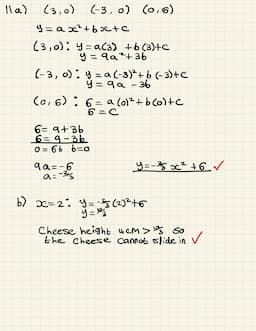 11a) (3,0) (-3,0) (0,6)
y = ax² + bx + c
(3,0): y = a(3)² + b(3) + c
y = 9a + 3b
(-3,0): y = a(-3)² + b(-3) + c
y = 9a - 3b
(0,6): 6 = a(0)² + b(0) + c
6 = c
6 = 9+3b
6 = 9-3b
0 = 6b b=0
9a = -6
a = -⅔
y = -⅔x² + 6 ✓
b) x=2: y = -⅔(2)² + 6
y = 10/3
Cheese height 4cm > 10/3 so
the cheese cannot slide in ✓